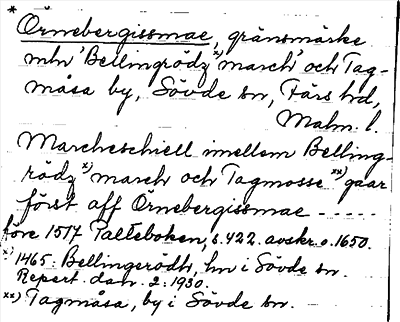 *
Örnebergissmae, gränsmärke
mhr 'Bellingrödz x) march' och Tag-
måsa by, Sövde sn, Färs hd,
Malm. l.
Marcheschiell imellem Belling-
rödz x) march och Tagmosse xx) gaar
först aff Örnebergissmae -----
före 1517 Palteboken, s. 422. avskr. o. 1650.
x) 1465: Bellingerödh, hn i Sövde sn.
Repert. dan. 2: 1930.
xx) Tagmåsa, by i Sövde sn.